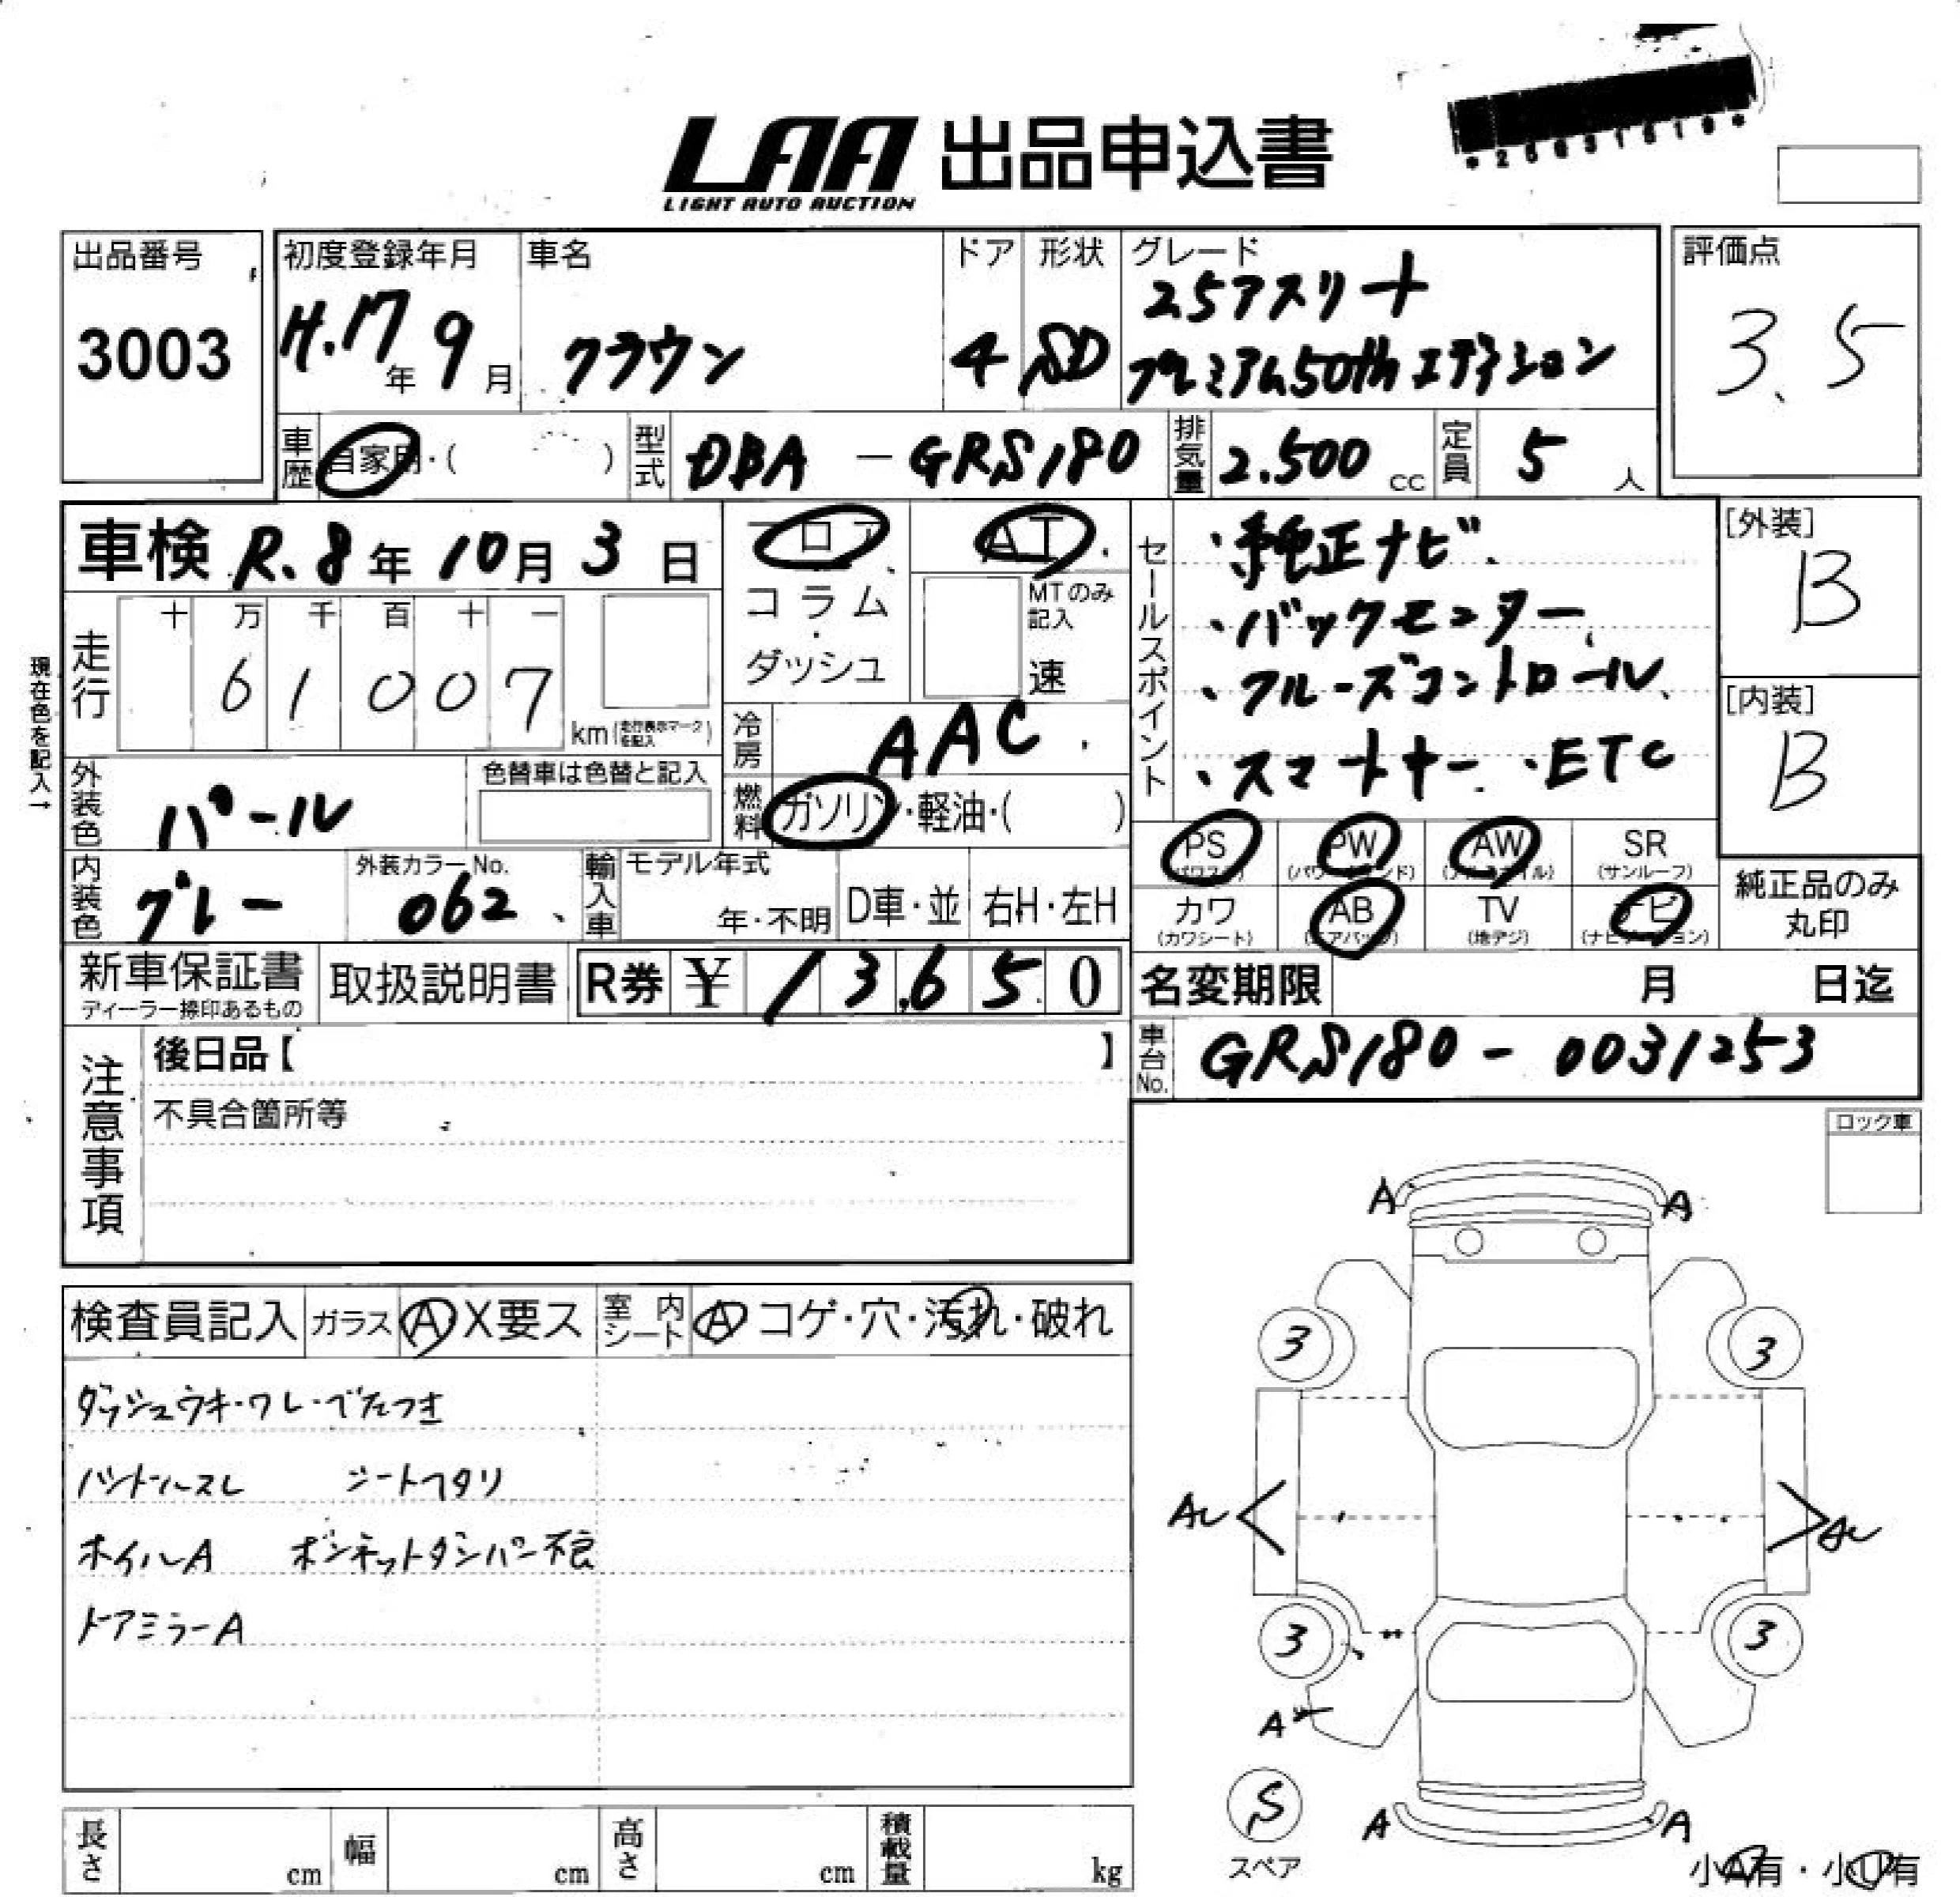 LAA 出品申込書
LIGHT AUTO AUCTION
出品番号
3003
初度登録年月
H.17年 9月
車名
クラウン
ドア
4
形状
SD
グレード
25アスリート
プレミアム50thエディション
評価点
3.5
車歴 自家用・( )
型式 DBA - GRS180
排気量 2.500 cc
定員 5 人
車検 R.8年 10月 3日
フロア
コラム
・
ダッシュ
AT
MTのみ
記入
速
セールスポイント
・純正ナビ
・バックモニター
・クルーズコントロール
・スマートキー ・ETC
[外装]
B
[内装]
B
現在色を記入→
走行
十 万 千 百 十 一
6 1 0 0 7
km (走行表示マークを記入)
冷房 AAC
燃料 ガソリン・軽油・( )
外装色 パール
色替車は色替と記入
内装色 グレー
外装カラーNo.
062
輸入車
モデル年式
年・不明
D車・並
右H・左H
PS (パワステ)
PW (パワーウインド)
AW (アルミホイル)
SR (サンルーフ)
カワ (カワシート)
AB (エアバッグ)
TV (地デジ)
ナビ (ナビゲーション)
純正品のみ
丸印
新車保証書
ディーラー捺印あるもの
取扱説明書
R券 ¥ 13,650
名変期限 月 日迄
車台No. GRS180 - 0031253
注意事項
後日品【 】
不具合箇所等
ロック車
検査員記入 ガラス A X要ス
室内シート A コゲ・穴・汚れ・破れ
ダッシュウキ・ワレ・べたつき
ハンドルスレ シートヘタリ
ホイルA ボンネットダンパー不良
ドアミラーA
A A
3 3
AU AU
3 3
A
S
スペア
A A
小A有・小U有
長さ cm
幅 cm
高さ cm
積載量 kg